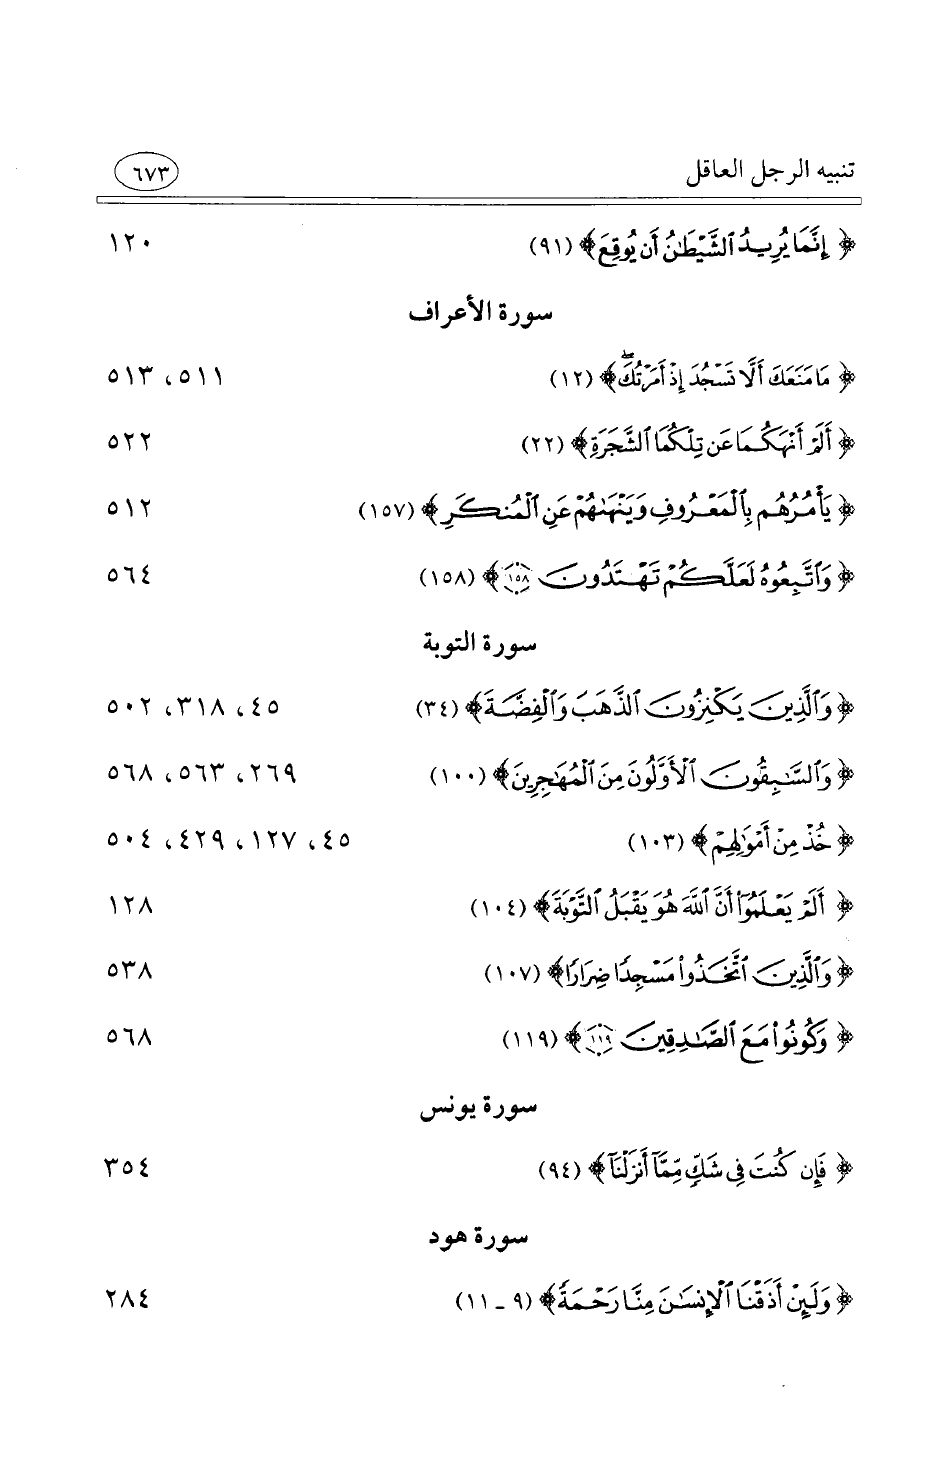 تنبيه الرجل العاقل ٦٧٣
﴿ إِنَّمَا يُرِيدُ ٱلشَّيْطَٰنُ أَن يُوقِعَ﴾ (٩١) ١٢٠
سورة الأعراف
﴿ مَا مَنَعَكَ أَلَّا تَسْجُدَ إِذْ أَمَرْتُكَۖ﴾ (١٢) ٥١١، ٥١٣
﴿ أَلَمْ أَنْهَكُمَا عَن تِلْكُمَا ٱلشَّجَرَةِ﴾ (٢٢) ٥٢٢
﴿ يَأْمُرُهُم بِٱلْمَعْرُوفِ وَيَنْهَىٰهُمْ عَنِ ٱلْمُنكَرِ﴾ (١٥٧) ٥١٢
﴿ وَٱتَّبِعُوهُ لَعَلَّكُمْ تَهْتَدُونَ ١٥٨﴾ (١٥٨) ٥٦٤
سورة التوبة
﴿ وَٱلَّذِينَ يَكْنِزُونَ ٱلذَّهَبَ وَٱلْفِضَّةَ﴾ (٣٤) ٤٥، ٣١٨، ٥٠٢
﴿ وَٱلسَّٰبِقُونَ ٱلْأَوَّلُونَ مِنَ ٱلْمُهَٰجِرِينَ﴾ (١٠٠) ٢٦٩، ٥٦٣، ٥٦٨
﴿ خُذْ مِنْ أَمْوَٰلِهِمْ﴾ (١٠٣) ٤٥، ١٢٧، ٤٢٩، ٥٠٤
﴿ أَلَمْ يَعْلَمُوٓا۟ أَنَّ ٱللَّهَ هُوَ يَقْبَلُ ٱلتَّوْبَةَ﴾ (١٠٤) ١٢٨
﴿ وَٱلَّذِينَ ٱتَّخَذُوا۟ مَسْجِدًا ضِرَارًا﴾ (١٠٧) ٥٣٨
﴿ وَكُونُوا۟ مَعَ ٱلصَّٰدِقِينَ ١١٩﴾ (١١٩) ٥٦٨
سورة يونس
﴿ فَإِن كُنتَ فِى شَكٍّ مِّمَّآ أَنزَلْنَآ﴾ (٩٤) ٣٥٤
سورة هود
﴿ وَلَئِنْ أَذَقْنَا ٱلْإِنسَٰنَ مِنَّا رَحْمَةً﴾ (٩ ـ ١١) ٢٨٤